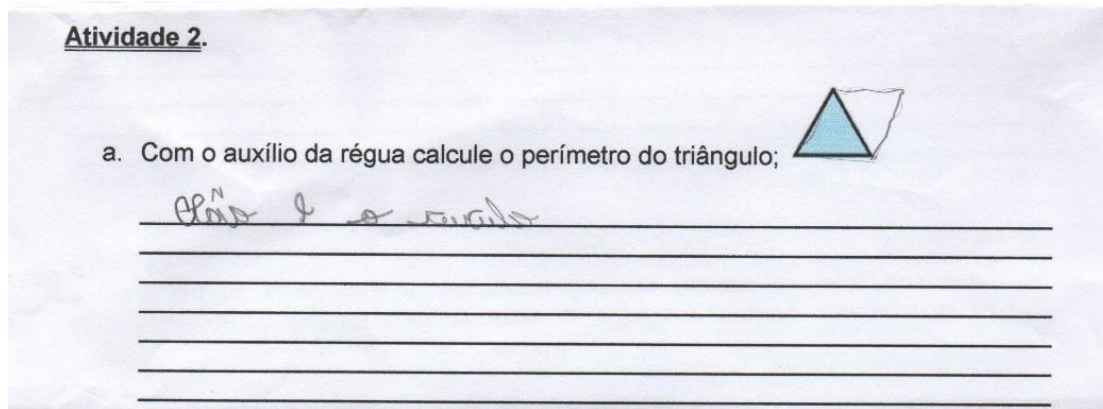 Atividade 2.
a. Com o auxílio da régua calcule o perímetro do triângulo;
Não é o